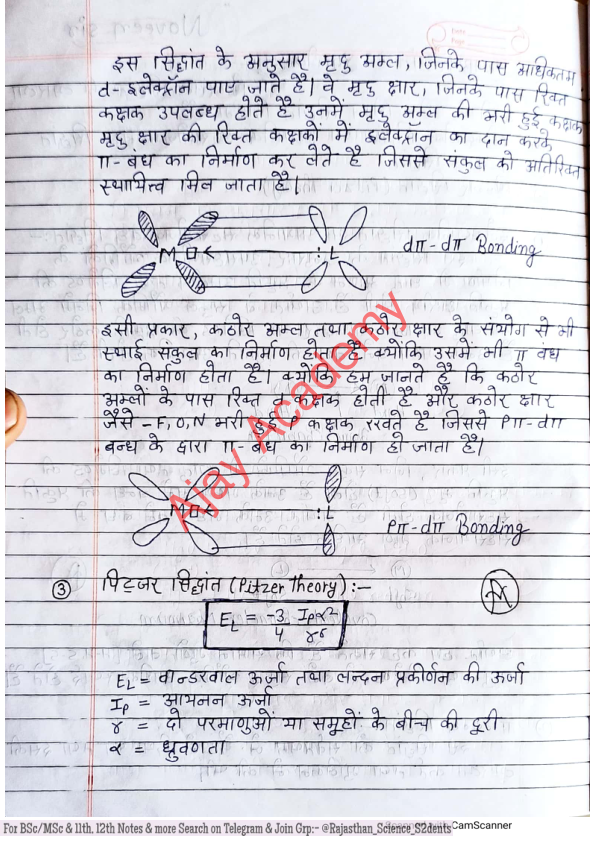 इस सिद्धांत के अनुसार मृदु अम्ल, जिनके पास अधिकतम
d-इलेक्ट्रॉन पाए जाते है। वे मृदु क्षार, जिनके पास रिक्त
कक्षक उपलब्ध होते है उनमें मृदु अम्ल की भरी हुई कक्षक
मृदु क्षार की रिक्त कक्षकों में इलेक्ट्रॉन का दान करके
π-बंध का निर्माण कर लेते है जिससे संकुल को अतिरिक्त
स्थायित्व मिल जाता है।
M :L dπ-dπ Bonding
इसी प्रकार, कठोर अम्ल तथा कठोर क्षार के संयोग से भी
स्थाई संकुल का निर्माण होता है क्योंकि उसमें भी π बंध
का निर्माण होता है। क्योंकि हम जानते है कि कठोर
अम्लों के पास रिक्त d कक्षक होती है और कठोर क्षार
जैसे -F, O, N भरी हुई P कक्षक रखते है जिससे Pπ-dπ
बन्ध के द्वारा π-बंध का निर्माण हो जाता है।
M :L Pπ-dπ Bonding
③ पिट्जर सिद्धांत (Pitzer Theory) :-
E_L = -3/4 I_p α²/r⁶
E_L = वान्डरवाल ऊर्जा तथा लन्दन प्रकीर्णन की ऊर्जा
I_p = आयनन ऊर्जा
r = दो परमाणुओं या समूहों के बीच की दूरी
α = ध्रुवणता
Ajay Academy
For BSc/MSc & 11th, 12th Notes & more Search on Telegram & Join Grp:- @Rajasthan_Science_S2dents CamScanner